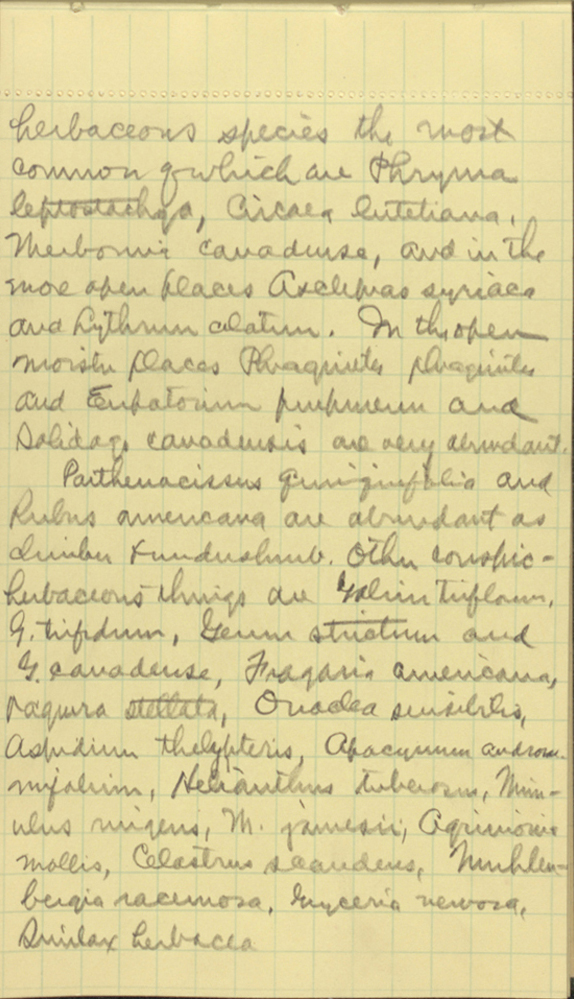 herbaceous species the most
common of which are Phryma
leptostachya, Circaea lutetiana,
Meibomia canadense, and in the
more open places Asclepias syriaca
and Lythrum alatum. In the open
moister places Phragmites phragmites
and Eupatorium purpureum and
Solidago canadensis are very abundant.
Parthenocissus quinquefolia and
Rubus americana are abundant as
climber & undershrub. Other conspic-
herbaceous things are Galium triflorum,
G. trifidum, Geum strictum and
G. canadense, Fragaria americana,
stellata, Onoclea sensibilis,
Aspidium thelypteris, Apocynum androse-
mifolium, Helianthus tuberosus, Mim-
ulus ringens, M. jamesii, Agrimonia
mollis, Celastrus scandens, Muhlen-
bergia racemosa, Glyceria nervosa,
Smilax herbacea